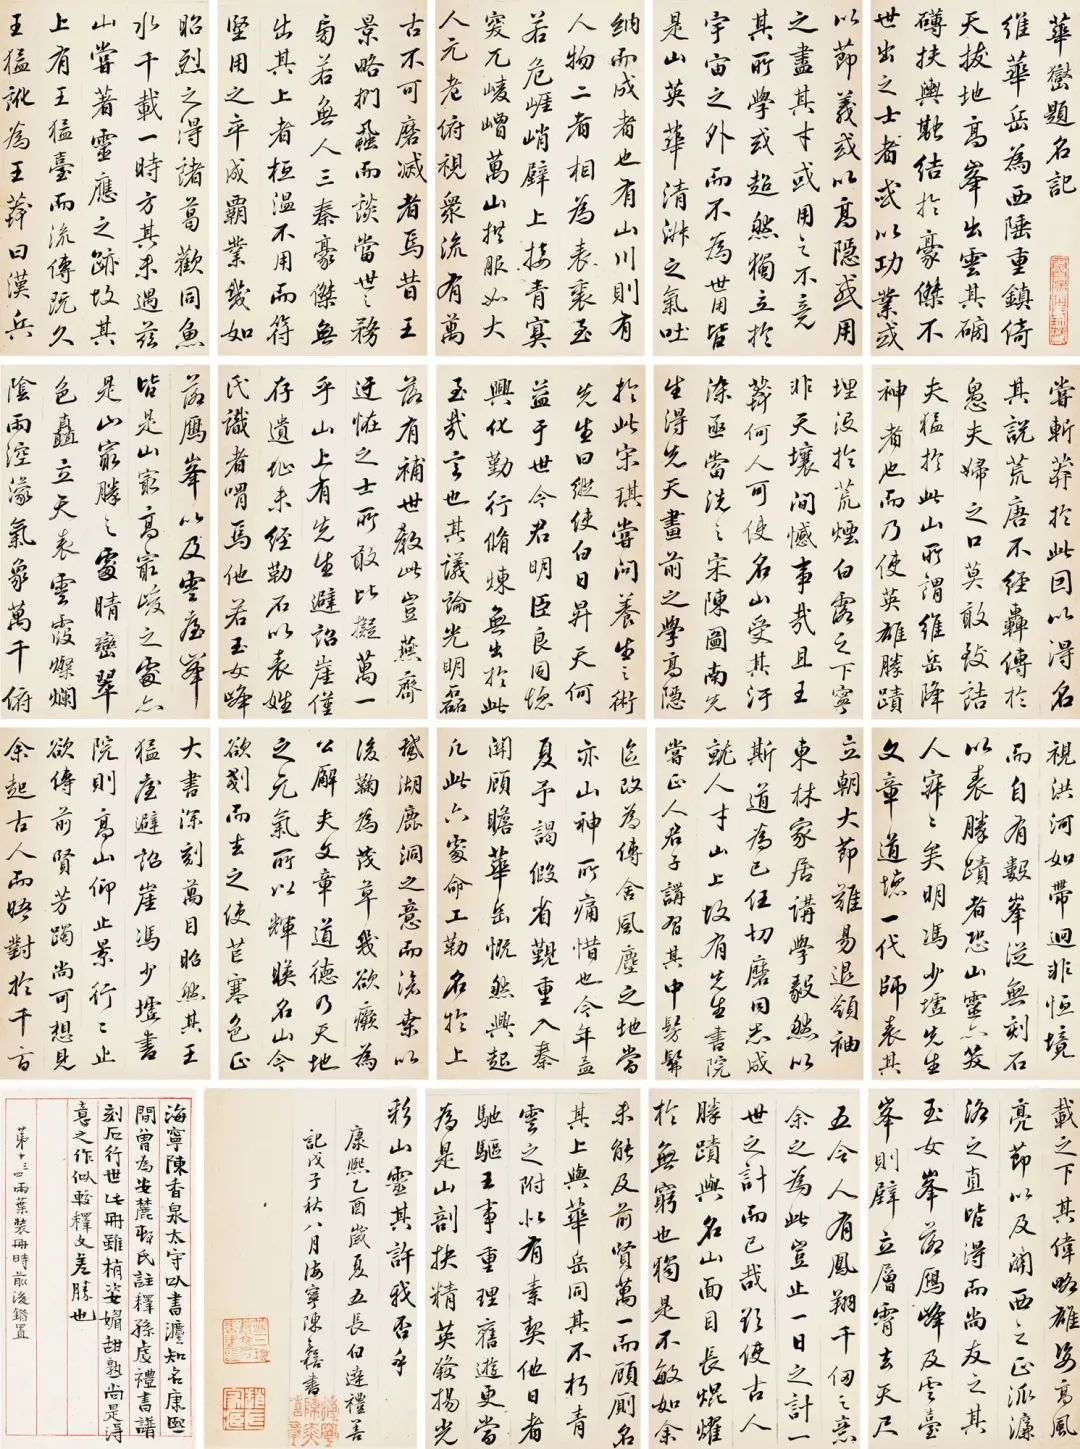 華嶽題名記
維華岳為西陲重鎮倚
天拔地高峯出雲其磅
礴扶輿融結於豪傑不
世出之士者或以功業或
以節義或以高隱或用
之盡其才或用之不竟
其所學或超然獨立於
宇宙之外而不為世用皆
是山英華清淑之氣吐
納而成者也有山川則有
人物二者相為表裏至
若危崕峭壁上接青冥
突兀崚嶒萬山拱服如大
人元老俯視衆流有萬
古不可磨滅者焉昔王
景略捫蝨而談當世之務
旁若無人三秦豪傑無
出其上者桓溫不用而符
堅用之卒成霸業幾如
昭烈之得諸葛歡同魚
水千載一時方其未遇茲
山嘗著靈應之跡故其
上有王猛臺而流傳既久
王猛訛為王莽曰漢兵
嘗斬莽於此因以得名
其說荒唐不經轟傳於
愚夫婦之口莫敢致詰
夫猛於此山所謂維岳降
神者也而乃使英雄勝蹟
埋沒於荒煙白露之下寧
非天壤間憾事哉且王
莽何人可使名山受其汙
染亟當洗之宋陳圖南先
生得先天畫前之學高隱
於此宋琪嘗問養生之術
先生曰縱使白日昇天何
益于世今君明臣良同德
興化勤行脩煉無出於此
至哉言也其議論光明磊
落有補世教此豈燕齊
迂怪之士所敢比擬萬一
乎山上有先生避詔崖僅
存遺址未經勒石以表姓
氏識者喟焉他若玉女峰
落鴈峯以及雲臺峯
皆是山最高最峻之處亦
是山最勝之處晴巒翠
色矗立天表雲霞燦爛
陰雨溟濛氣象萬千俯
視洪河如帶迥非恒境
而自有數峯從無刻石
以表勝蹟者恐山靈亦笑
人寂寂矣明馮少墟先生
文章道德一代師表其
立朝大節難易退領袖
東林家居講學毅然以
斯道為己任切磨同志成
就人才山上故有先生書院
當正人君子講習其中髣髴
區改為傳舍風塵之地當
亦山神所痛惜也今年孟
夏予謁假省覲重入秦
關顧瞻華岳慨然興起
凡此六處命工勒名於上
鵝湖鹿洞之意而滄桑以
後鞠為茂草幾欲癈為
公廨夫文章道德乃天地
之元氣所以輝暎名山今
欲剗而去之使芒寒色正
大書深刻萬目昭然其王
猛臺避詔崖馮少墟書
院則高山仰止景行行止
欲傳前賢芳躅尚可想見
余起古人而晤對於千百
載之下其偉略雄姿高風
亮節以及關西之正派濂
洛之真皆得而尚友之其
玉女峯落鴈峰及雲臺
峯則壁立層霄去天尺
五令人有鳳翔千仞之意
余之為此豈止一日之計一
世之計而已哉欲使古人
勝蹟與名山面目長焜燿
於無窮也獨是不敏如余
未能及前賢萬一而顧廁名
其上與華岳同其不朽青
雲之附心有素契他日者
馳驅王事重理舊遊更當
為是山剖抉精英發揚光
彩山靈其許我否乎
康熙乙酉歲夏五長白達禮善
記戊子秋八月海寧陳奕禧書
海寧陳香泉太守以書灋知名康熙
間曾為安麓邨氏註釋孫虔禮書譜
刻石行世此冊雖稍姿媚甜熟尚是得
意之作似較釋文差勝也
第十三四兩葉裝冊時前後錯置